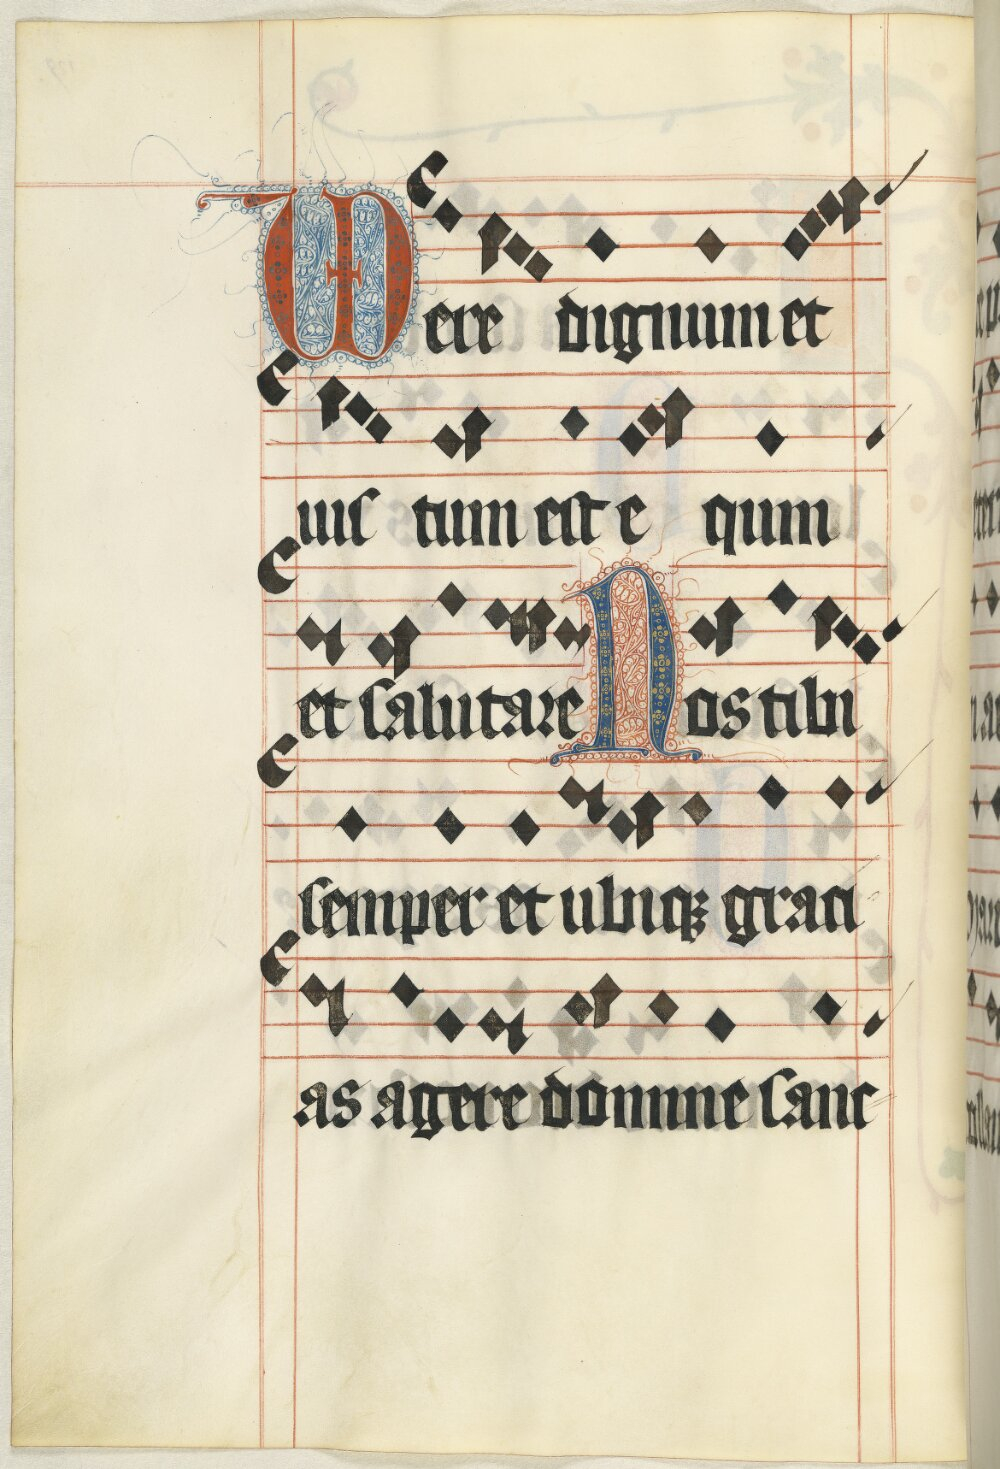 Vere dignum et
ius tum est e quum
et salutare Nos tibi
semper et ubiqꝫ graci
as agere domine sanc